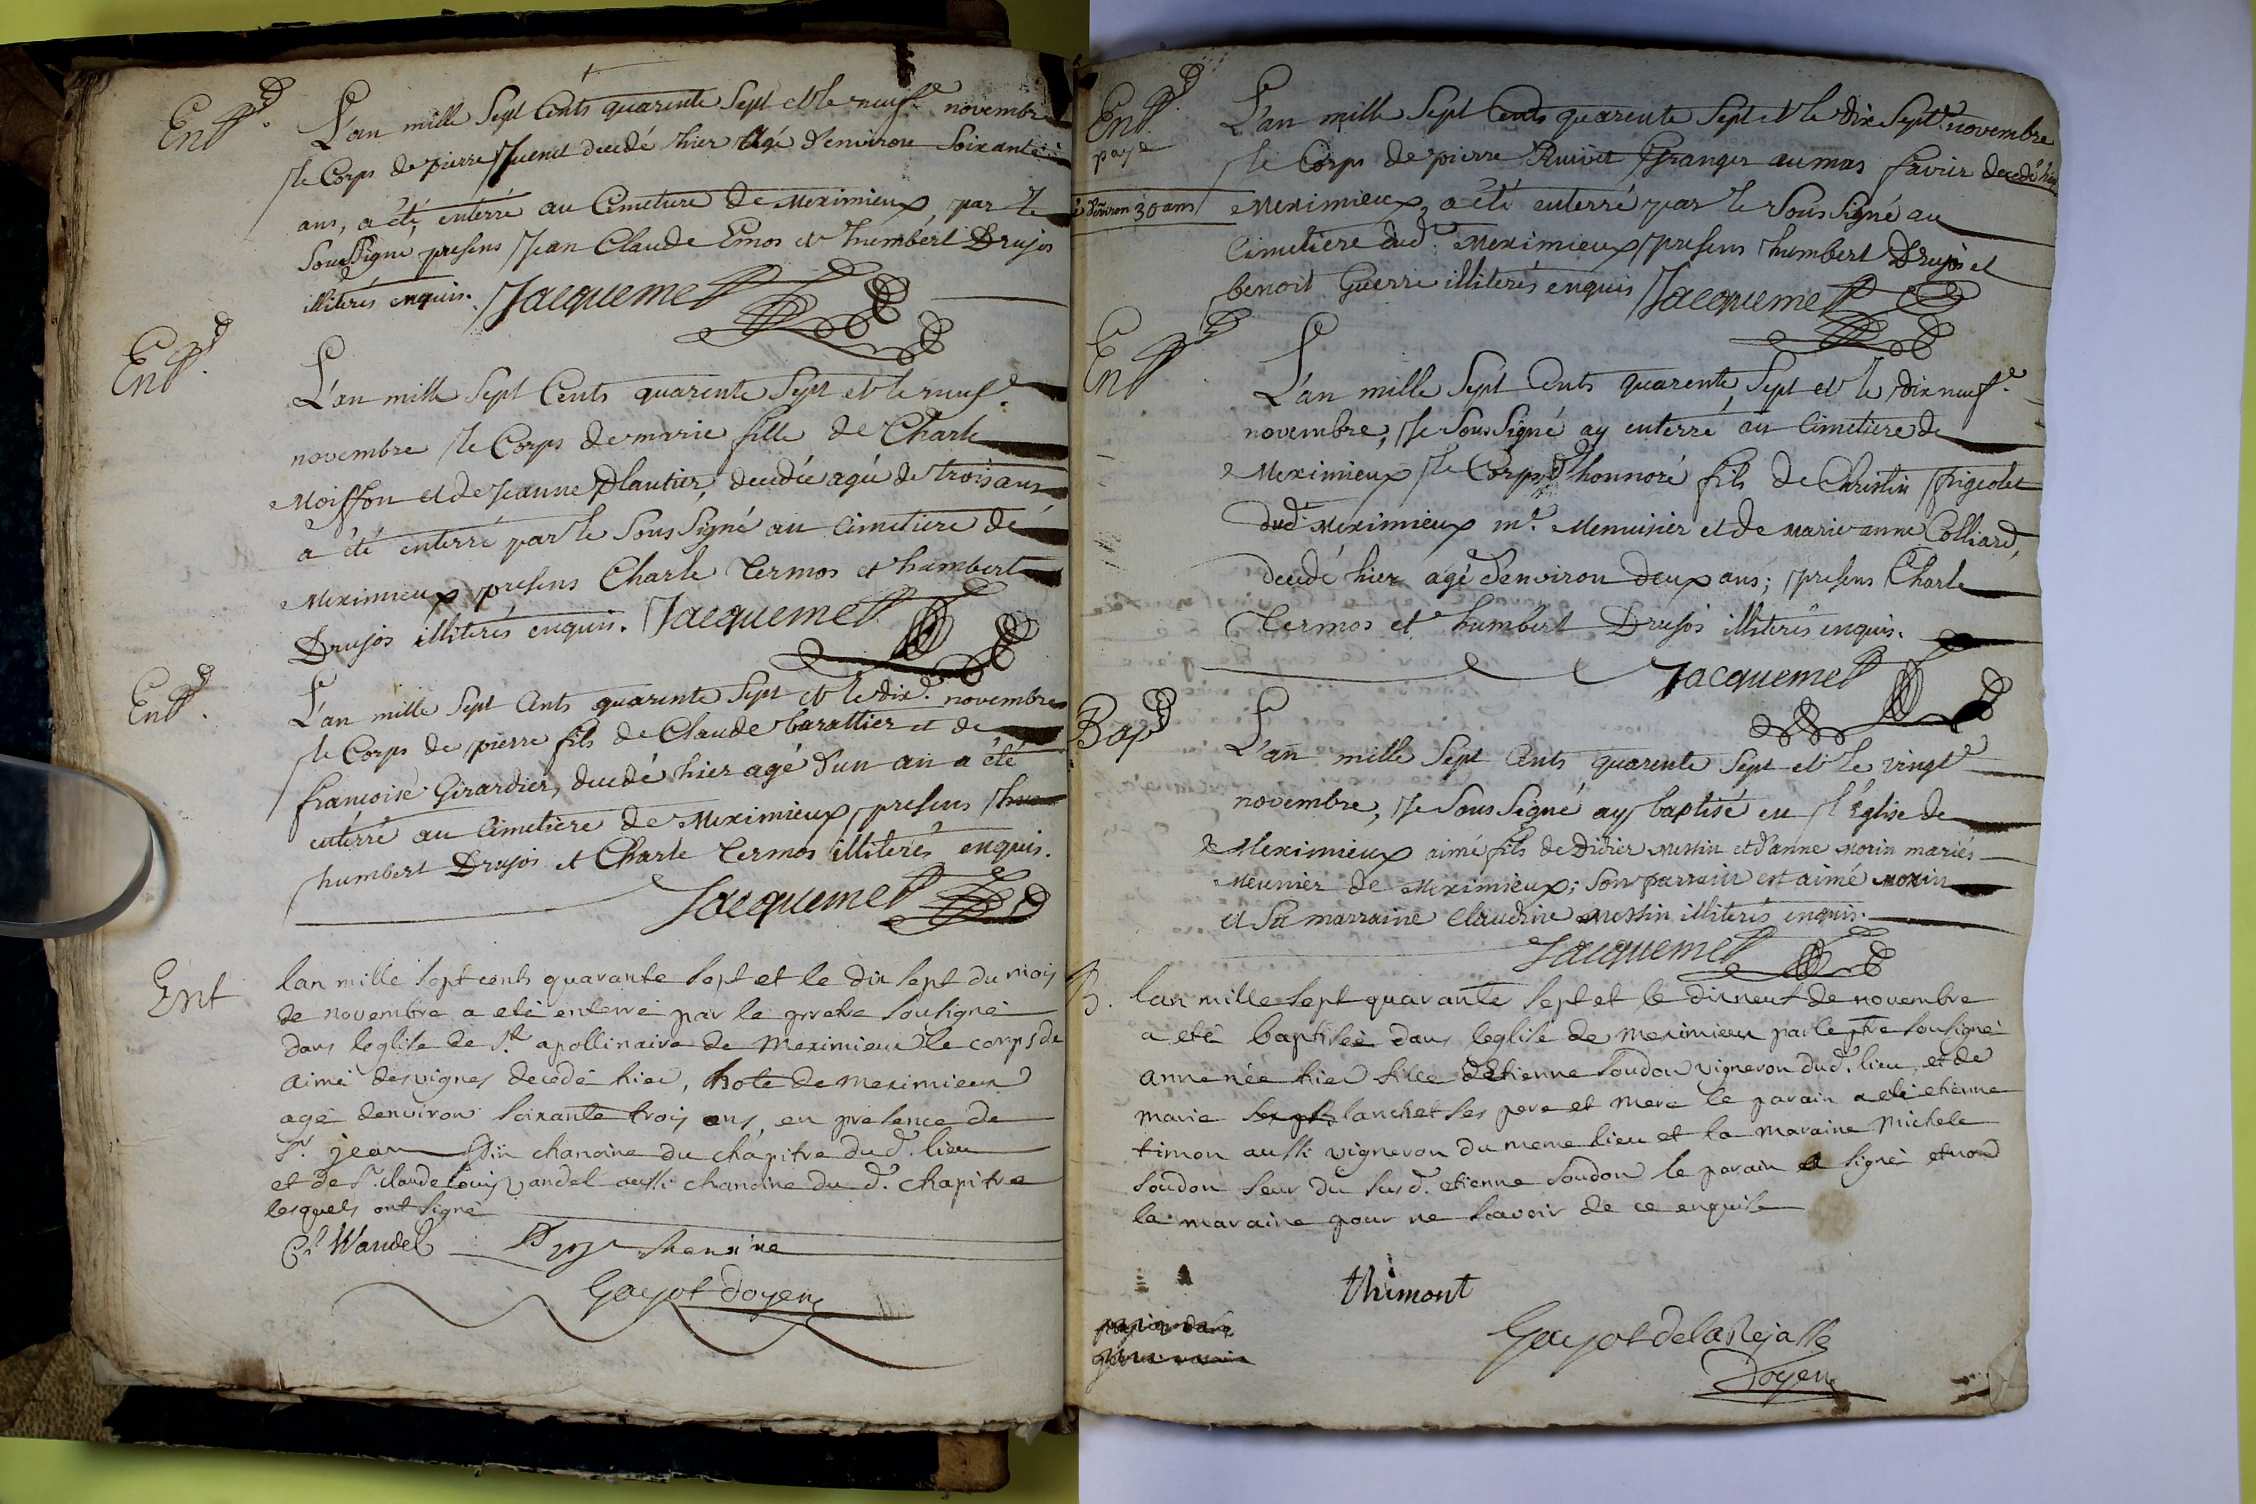 Ent.
L'an mille Sept Cents quarente Sept et le neuf.e novembre
le Corps de pierre decedé hier Agé d'environ Soixante
ans, a été enterré au Cimetiere de Meximieux par le
Sous Signé presens Jean Claude Emos et humbert Drujos
illiterés enquis. Jacquemet
Ent.
L'an mille Sept Cents quarente Sept et le neuf.e
novembre le Corps de marie fille de Charle
Moisson et de Jeanne plantier, decedée agée de trois ans
a été enterré par le Sous Signé au Cimetiere de
Meximieux presens Charle Termos et humbert
Drujos illiterés enquis. Jacquemet
Ent.
L'an mille Sept Cents quarente Sept et le dix.e novembre
le Corps de pierre fils de Claude barattier et de
francoise Girardier, decedé hier agé d'un an a été
enterré au Cimetiere de Meximieux, presens
humbert Drujos et Charle Termos illiterés enquis.
Jacquemet
Ent
lan mille sept cents quarante sept et le dix sept du mois
de novembre a eté enterré par le pretre sousigné
dans leglise de St. apollinaire de Meximieux le corps de
aimé desvignes decedé hier, hote de meximieux
agé denviron soixante trois ans, en presence de
Sr. jean chanoine du chapitre dud. lieu
et de Sr. claude louis vandel aussi chanoine du d. chapitre
lesquels ont signé
Cl Wandel chanoine
Gayot doyen
Ent.
paye
d'environ 30 ans
L'an mille Sept Cents quarente Sept et le dix Sept.e novembre
le Corps de pierre Ruivet Granger au mas favier decedé hier
Meximieux, a été enterré par le Sous Signé au
Cimetiere dud. Meximieux, presens humbert Drujos et
benoit Guerre illiterés enquis Jacquemet
Ent
L'an mille Sept Cents quarente Sept et le dix neuf.e
novembre, je Sous Signé ay enterré au Cimetiere de
Meximieux le Corps d'honnoré fils de Christin frigeolet
dud. Meximieux m.e Menuisier et de marie anne Colliard,
decedé hier agé d'environ deux ans; presens Charle
Termos et humbert Drujos illiterés enquis.
Jacquemet
Bap
L'an mille Sept Cents quarente Sept et le vingt.e
novembre, je Sous Signé ay baptisé en l'Eglise de
Meximieux aimé fils de Didier Messin et d'anne Morin mariés
Meunier de Meximieux; Son parrain est aimé Morin
et Sa marraine Claudine Messin illiterés enquis.
Jacquemet
B.
lan mille sept quarante sept et le dixneuf de novembre
a eté baptisée dans leglise de meximieux par le ptre sousigné
anne née hier fille d'Etienne soudon vigneron dud. lieu, et de
marie lanchet ses pere et mere le parain a eté etienne
timon aussi vigneron du meme lieu et la maraine Michele
soudon seur du susd. etienne soudon le parain a signé et non
la maraine pour ne scavoir de ce enquise
thimont
Gayot de la Rejasse
Doyen